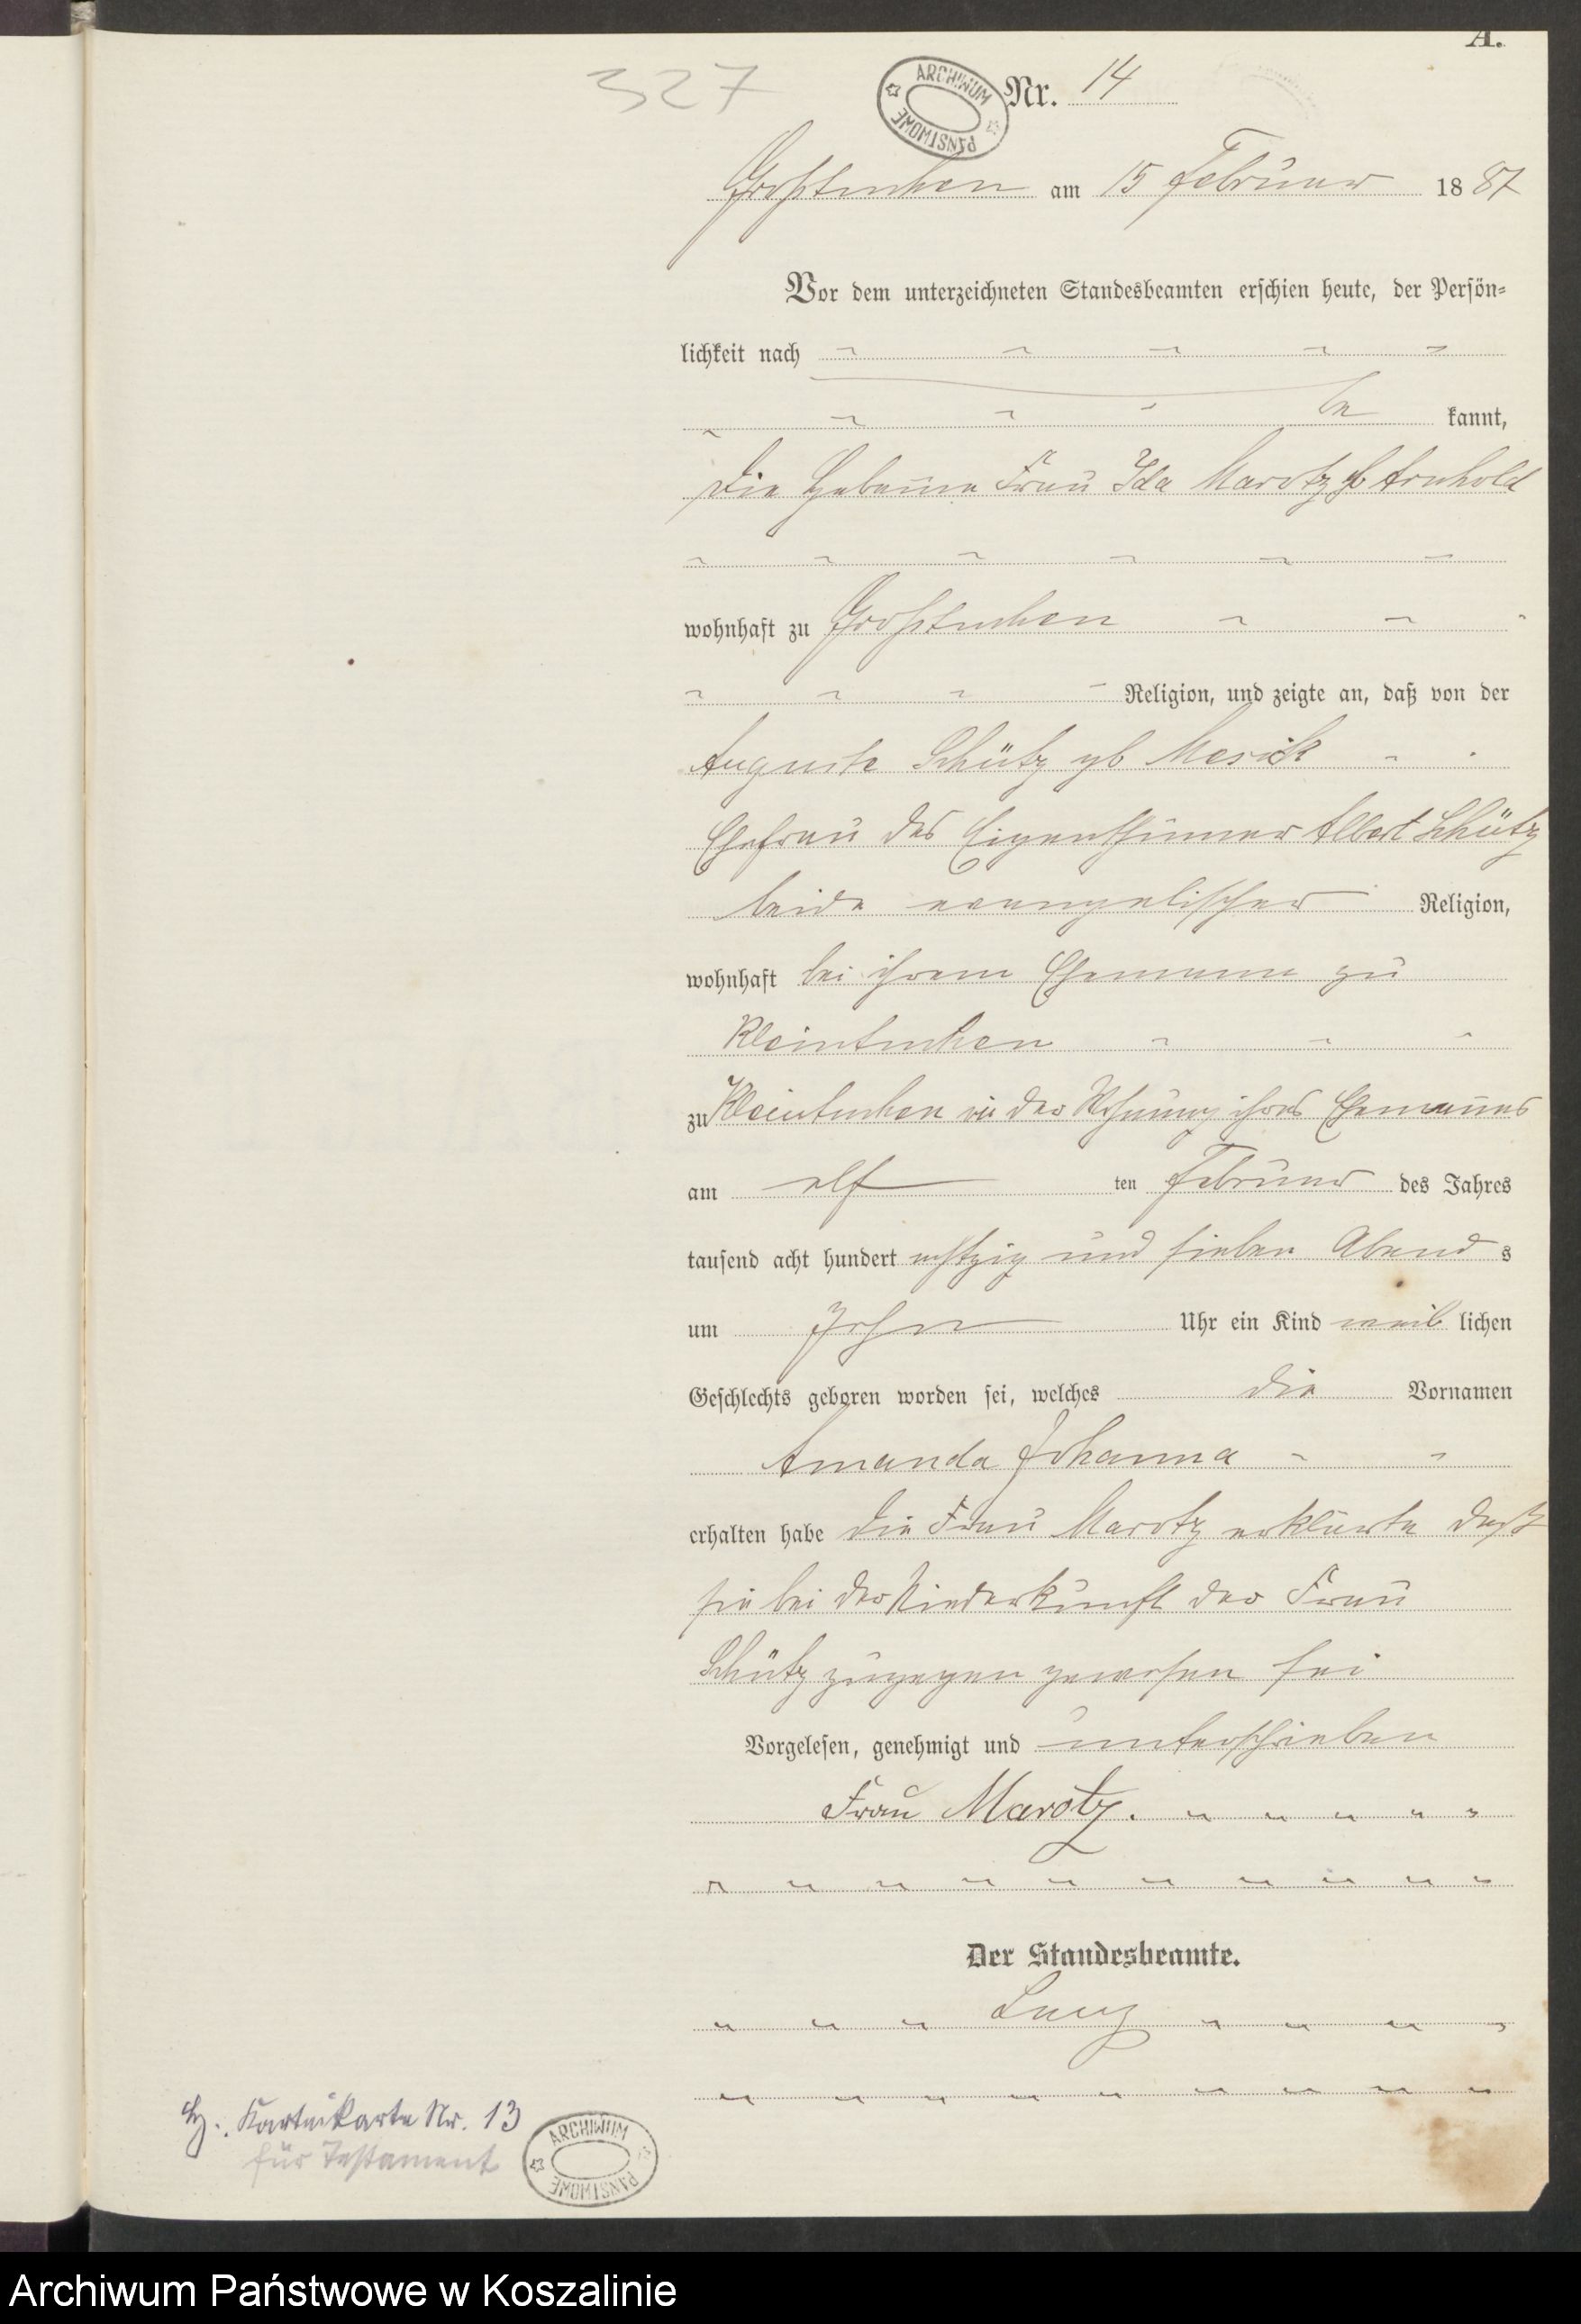 A.
327
ARCHIWUM PAŃSTWOWE
Nr. 14
Großtuchen am 15 Februar 1887
Vor dem unterzeichneten Standesbeamten erschien heute, der Persön-
lichkeit nach
be kannt,
die Hebamme Frau Ida Marotz gb Arnhold
wohnhaft zu Großtuchen
Religion, und zeigte an, daß von der
Auguste Schütz gb Mesick
Ehefrau des Eigenthümer Albert Schütz
beide evangelischer Religion,
wohnhaft bei ihrem Ehemann zu
Kleintuchen
zu Kleintuchen in der Wohnung ihres Ehemannes
am elf ten Februar des Jahres
tausend acht hundert achtzig und sieben Abend s
um Zehn Uhr ein Kind weib lichen
Geschlechts geboren worden sei, welches die Vornamen
Amanda Johanna
erhalten habe die Frau Marotz erklärte daß
sie bei der Niederkunft der Frau
Schütz zugegen gewesen sei
Vorgelesen, genehmigt und unterschrieben
Frau Marotz.
Der Standesbeamte.
Karteikarte Nr. 13
für Testament
ARCHIWUM PAŃSTWOWE
Archiwum Państwowe w Koszalinie